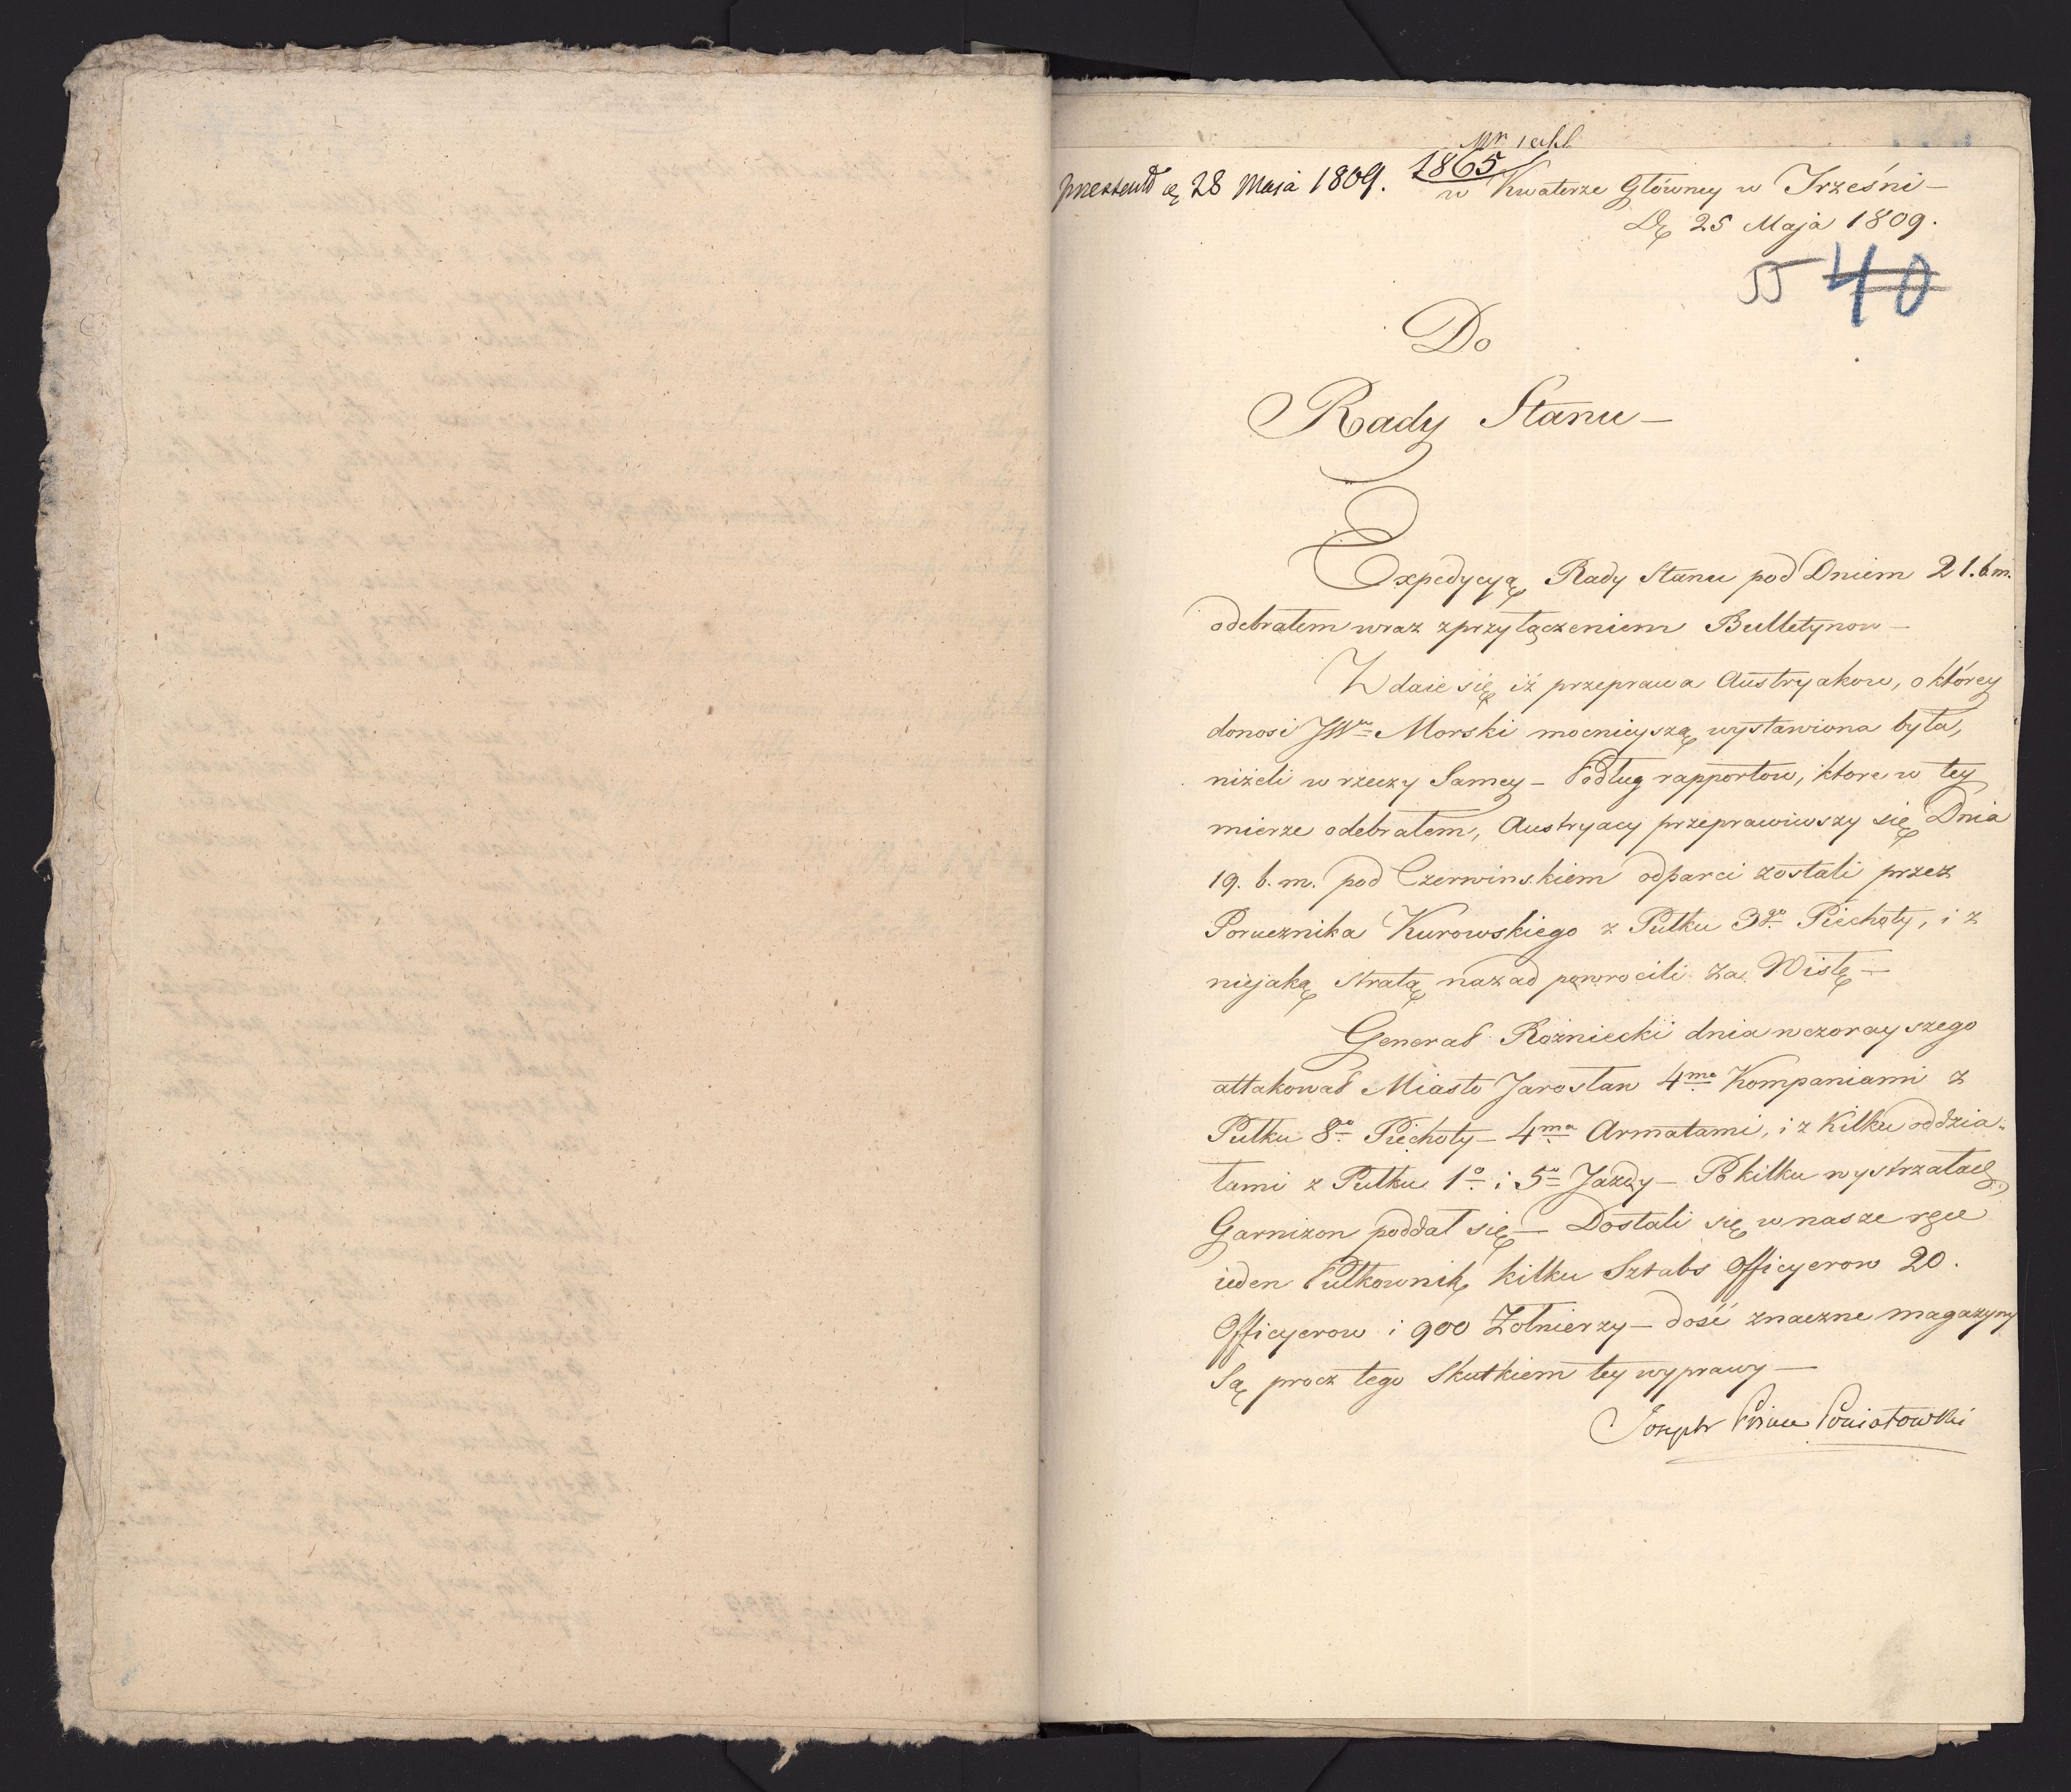 1865
praesent d. 28 Maja 1809.
w Kwaterze Główney w Trześni —
D. 25 Maja 1809.
55 40
Do
Rady Stanu —
Expedycyą Rady Stanu pod Dniem 21. b. m.
odebrałem wraz z przyłączeniem Bulletynow —
Wdaie się iż przeprawa Austryakow, o którey
donosi JW Morski mocnieyszą wystawiona była,
niżeli w rzeczy Samey — Podług rapportow, ktore w tey
mierze odebrałem, Austryacy przeprawiwszy się Dnia
19. b. m. pod Czerwinskiem odparci zostali przez
Porucznika Kurowskiego z Pułku 3go Piechoty, i z
niejaką stratą nazad powrocili za Wisłę —
Generał Rozniecki dnia wczorayszego
attakował Miasto Jarosław 4ma Kompaniami z
Pułku 8o Piechoty — 4ma Armatami, i z Kilku oddzia-
łami z Pułku 1o i 5o Jazdy — Po kilku wystrzałach,
Garnizon poddał się — Dostali się w nasze ręce
ieden Pułkownik, kilku Sztabs Officyerow 20.
Officyerow i 900 Żołnierzy — dość znaczne magazyny
Są procz tego Skutkiem tey wyprawy —
Joseph Prince Poniatowski